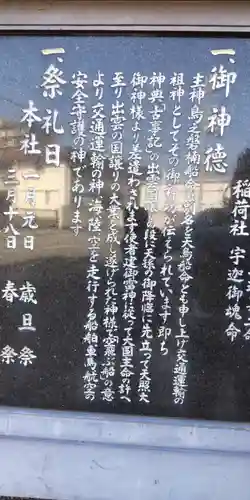 稲荷社　宇迦御魂命
一、御神徳
主神　鳥之磐楠船命は別名を天鳥船命とも申し上げ交通運輸の
祖神としてその御神徳が伝えられています　即ち
神典「古事記」の出雲国譲の段に天孫の御降臨に先立って天照大
御神様より差遣わされます使者建御雷神に従って大国主命の許へ
至り出雲の国譲りの大業を成し遂げられた神様で空飛ぶ船の意
より交通運輸の神、海、陸、空を走行する船舶車馬航空の
安全守護の神であります
一、祭礼日
本社　一月元日　歳旦祭
三月十八日　春祭